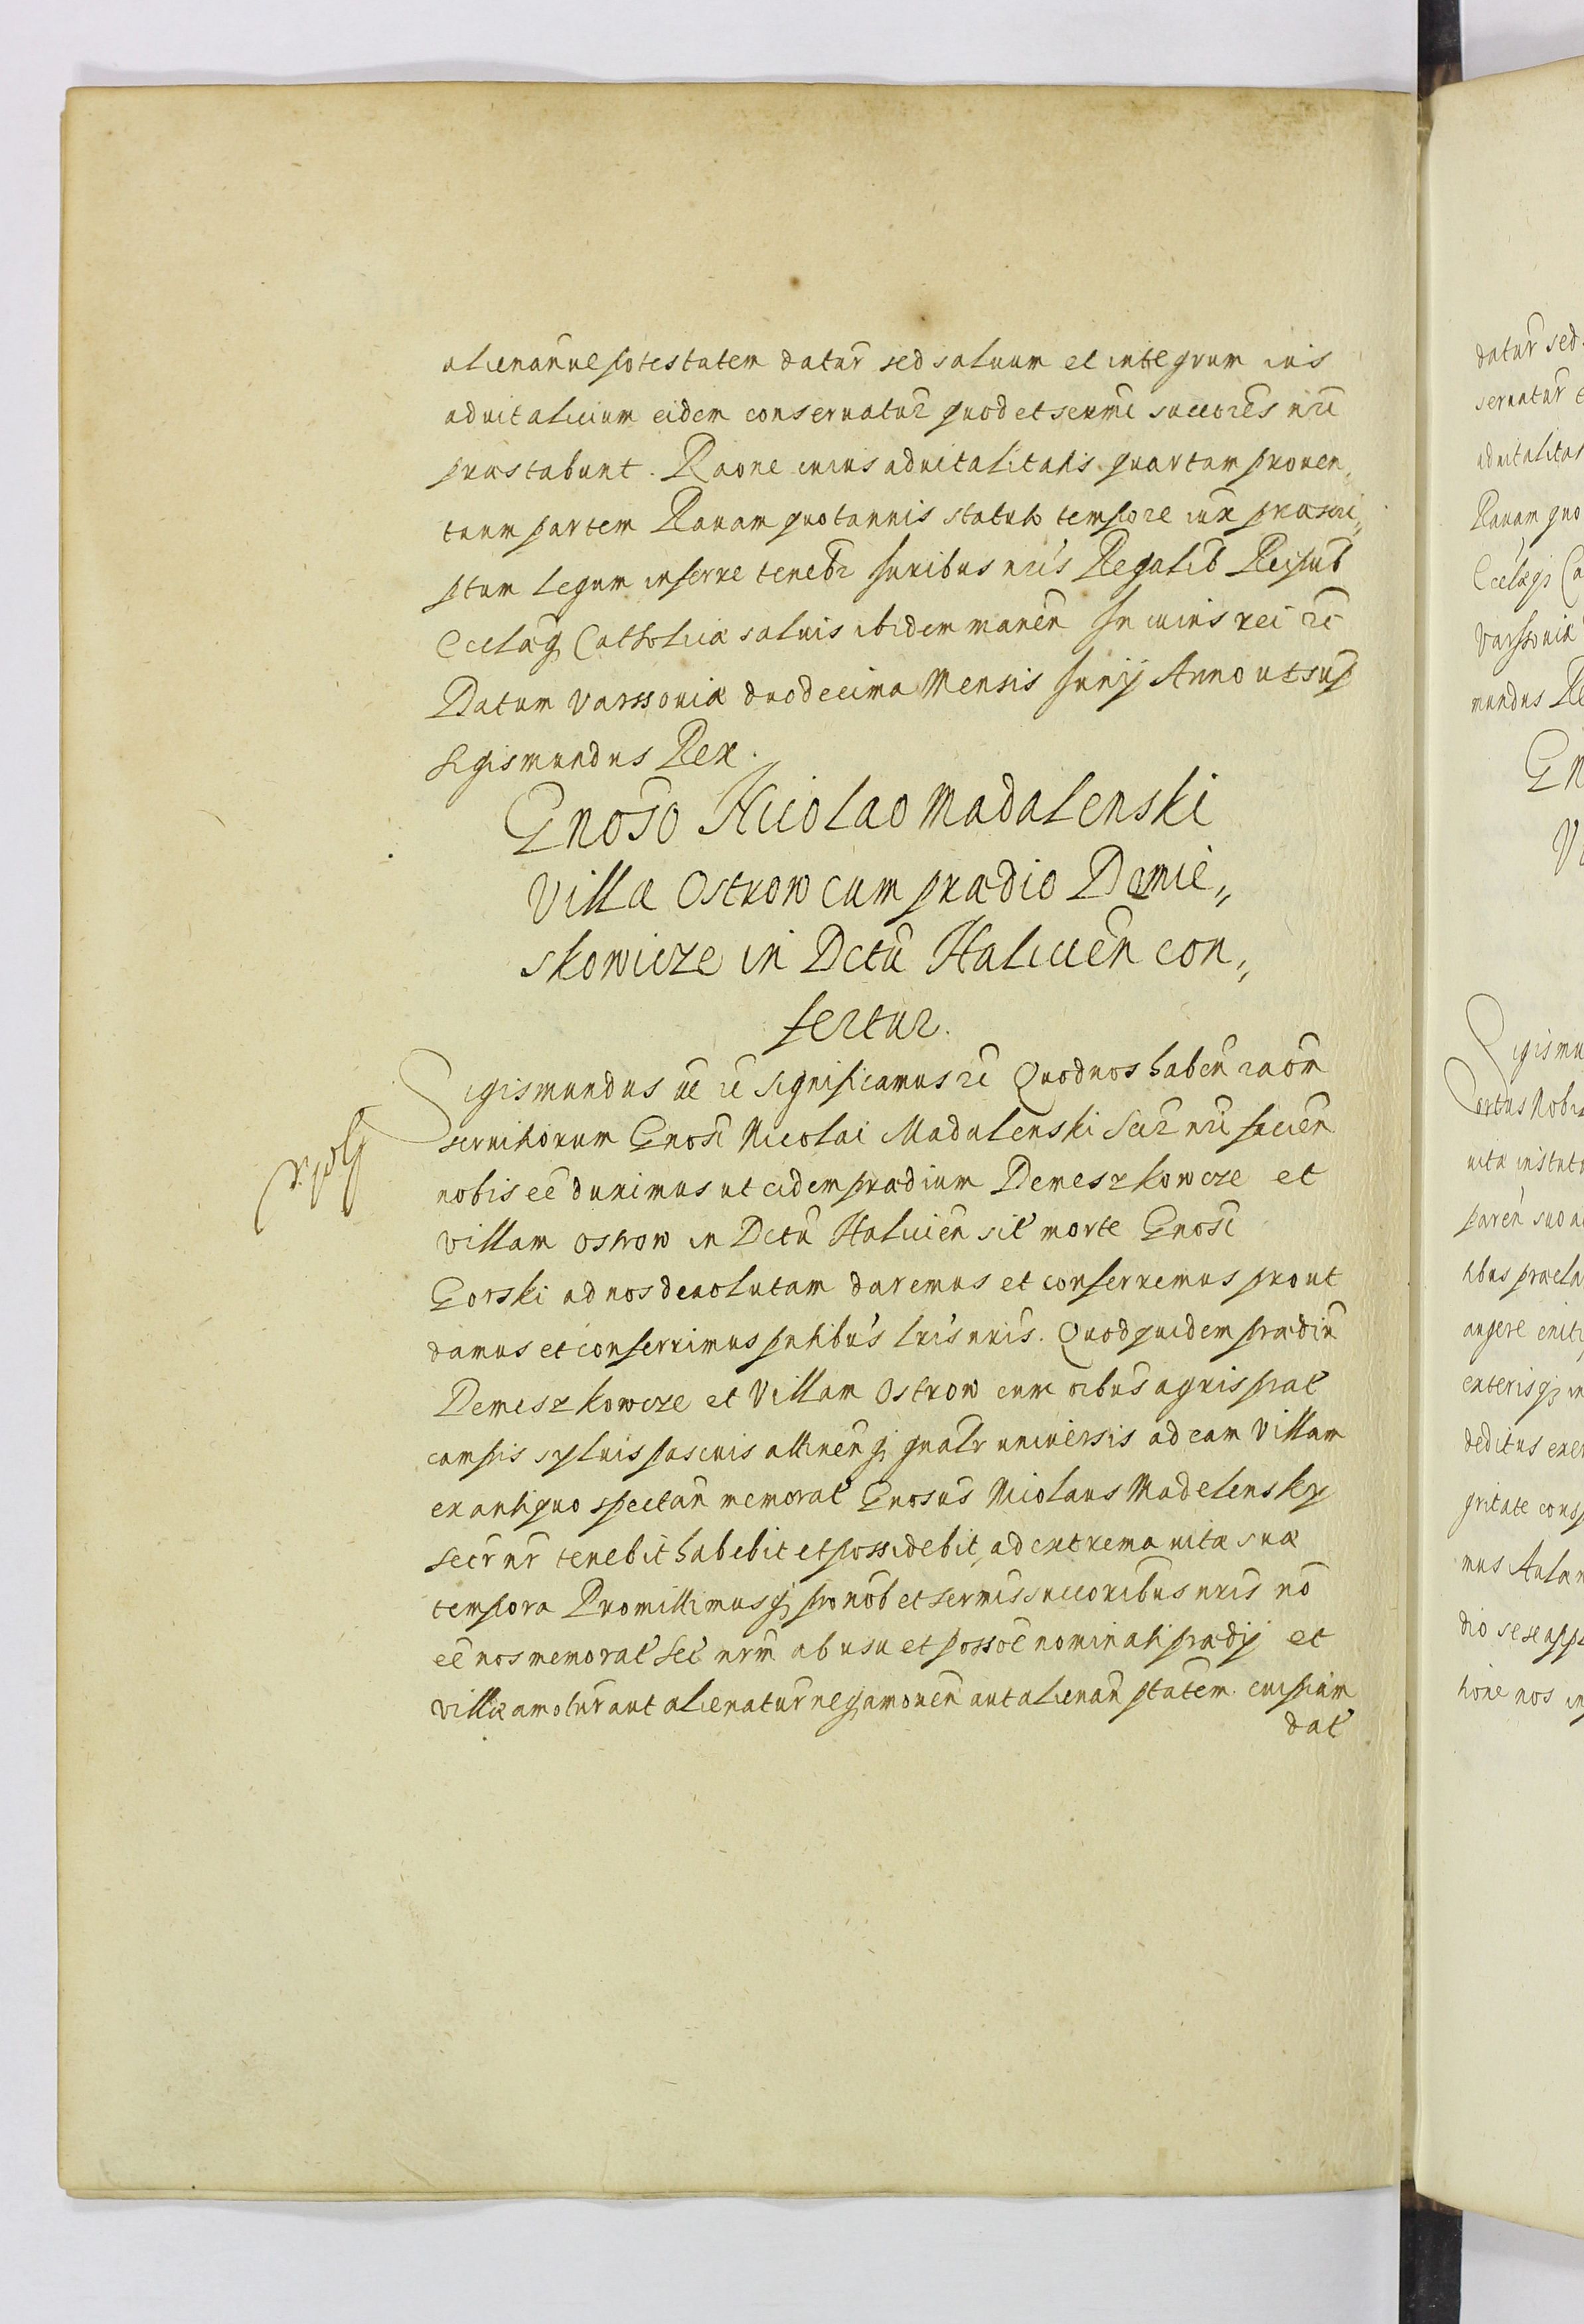 alienanve potestatem datur sed salvum et integrum ius
advitalicium eidem conservatur quod et sermi succores nri
præstabunt. Raone cuius advitalitatis quartam proven„
tuum partem Ravam quotannis statuto tempore iux præscri„
ptum legum inferre tenebr Iuribus nris Regalib Reipub
Ecclæq Catholicæ salvis ibidem manen In cuius rei etc
Datum Varssoviæ duodecima Mensis Iunij Anno ut sup
Sigismundus Rex.
Gnoso Nicolao Madalenski
Villa Ostrow cum prædio Demie„
skowicze in Dctu Haliccen con„
fertur.
Sigismundus etc etc Significamus etc Quod nos haben raom
servitiorum Gnosi Nicolai Madalenski Secr nri facien
nobis ee duximus ut eidem prædium Demeszkowcze et
villam Ostrow in Dctu Haliccien sit morte Gnosi
Gorski ad nos devolutam daremus et conferremus prout
damus et conferrimus pntibus lris nris. Quod quidem prædiu
Demeszkowcze et Villam Ostrow cum oibus agris prat
campis sylvis pascuis attinen q gnalr universis ad eam Villam
ex antiquo spectan memorat Gnosus Niolaus Madelensky
Secr nr tenebit habebit et possidebit, ad extrema vitæ suæ
tempora Promittimusq pro nob et sermis succoribus nris no
ee nos memorat Sec nrm ab usu et possoe nominati prædij et
Villæ amoturaut alienatur neq amoven aut alienan ptatem cuipiam
dat
datur sed
servatur e
advitalitat
Ravam quo
Ecclæq Ca
Varssoviæ
mundus Re
Gn
V
Sigismu
ortus Nobi
vita institut
paren suo a
tibus præcla
augere eniti
cæterisq in
deditus exer
gritate consp
mus Aulam
dio sese app
tione nos in